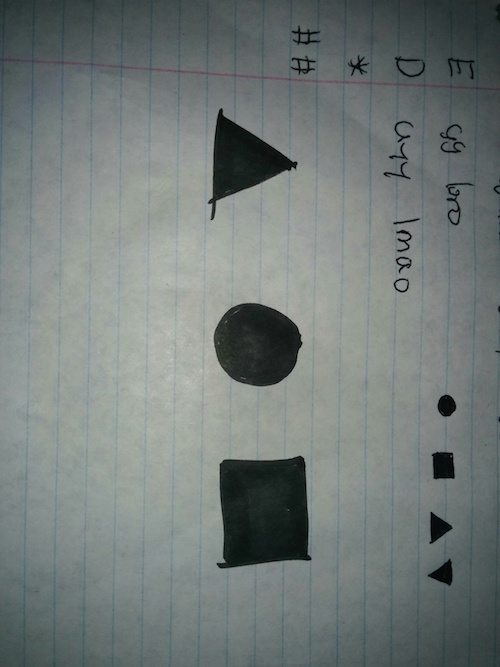 E gg bro
D ayy lmao
*
##